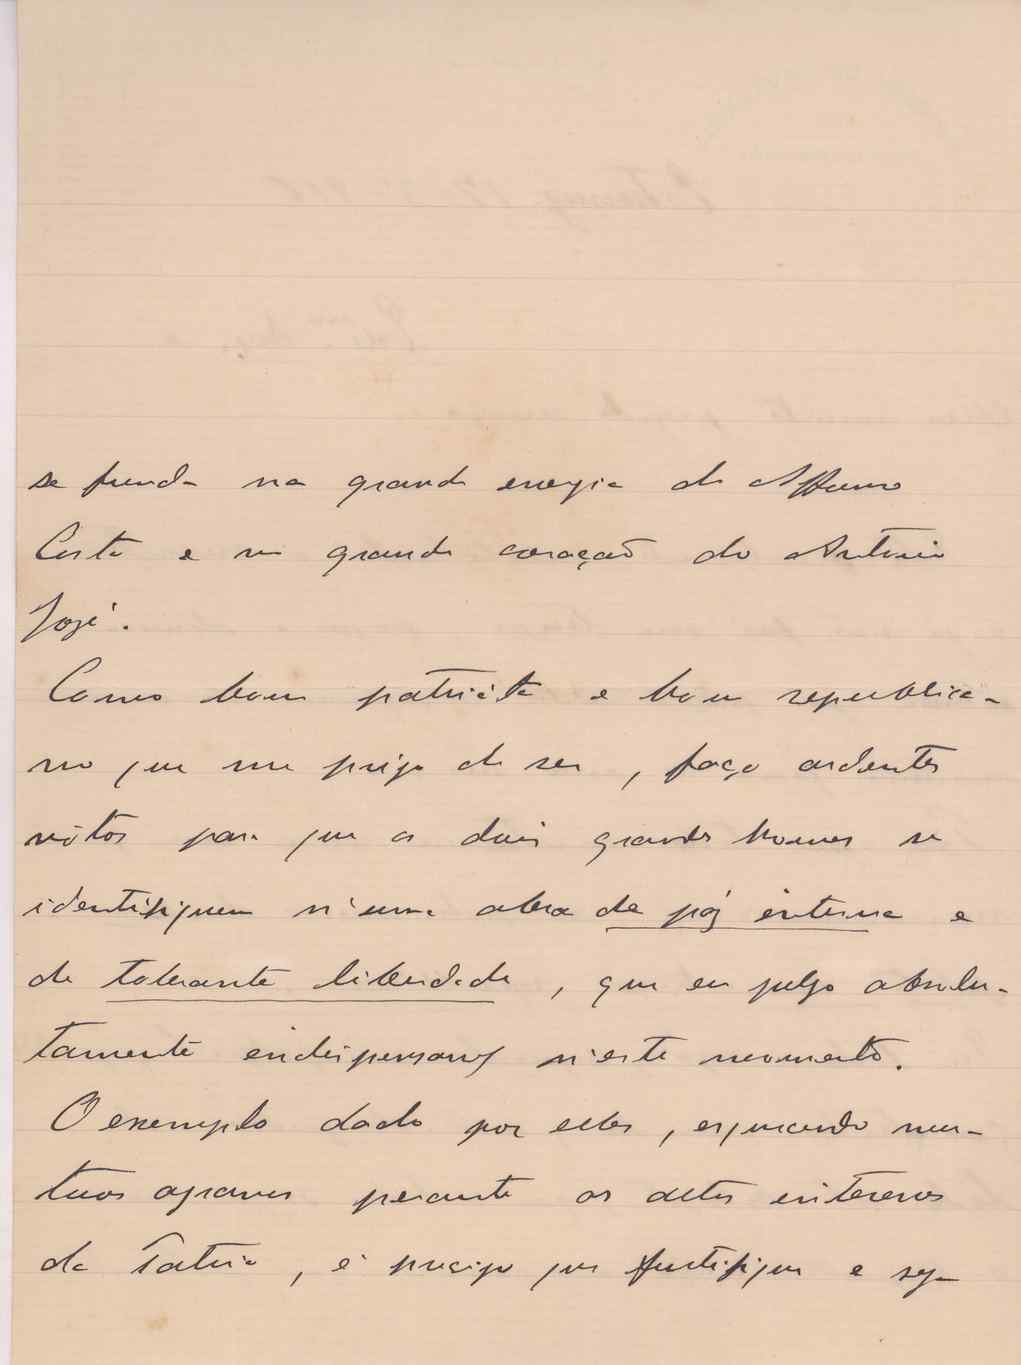 se funda na grande energia do Affonso
Costa e no grande coração do Antonio
José.
Como bom patriota e bom republica-
no que me prézo de ser, faço ardentes
vótos para que os dois grandes homens se
identifiquem n'uma obra de páz interna e
de tolerante liberdade, que eu julgo absolu-
tamente indispensavel n'este momento.
O exemplo dado por elles, esquecendo mu-
tuos agravos perante os altos interesses
da Patria, é preciso que frutifique e seja